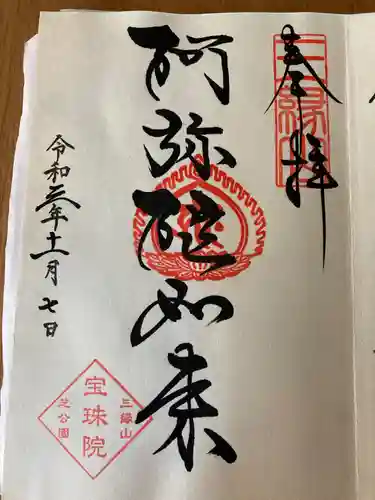 奉拝
三縁山
阿弥陀如来
令和三年十一月七日
三縁山
宝珠院
芝公園